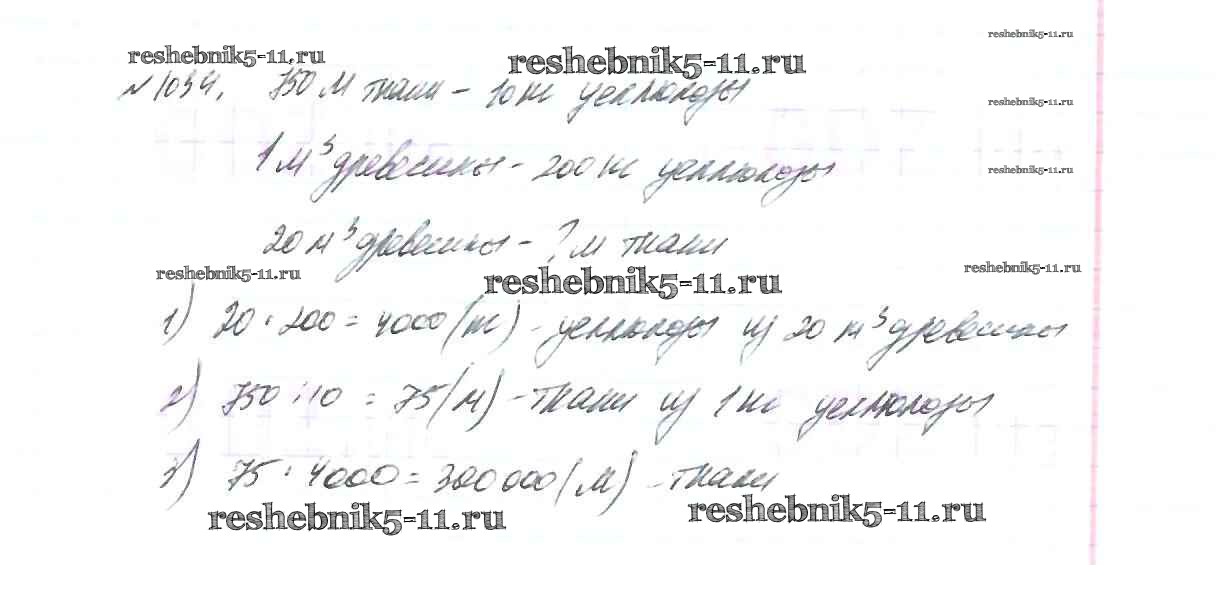 reshebnik5-11.ru reshebnik5-11.ru reshebnik5-11.ru
№1034. 750 м ткани - 10 кг целлюлозы
reshebnik5-11.ru
1 м³ древесины - 200 кг целлюлозы
reshebnik5-11.ru
20 м³ древесины - ? м ткани
reshebnik5-11.ru reshebnik5-11.ru reshebnik5-11.ru
1) 20 · 200 = 4000 (кг) - целлюлозы из 20 м³ древесины
2) 750 : 10 = 75 (м) - ткани из 1 кг целлюлозы
3) 75 · 4000 = 300 000 (м) - ткани
reshebnik5-11.ru reshebnik5-11.ru